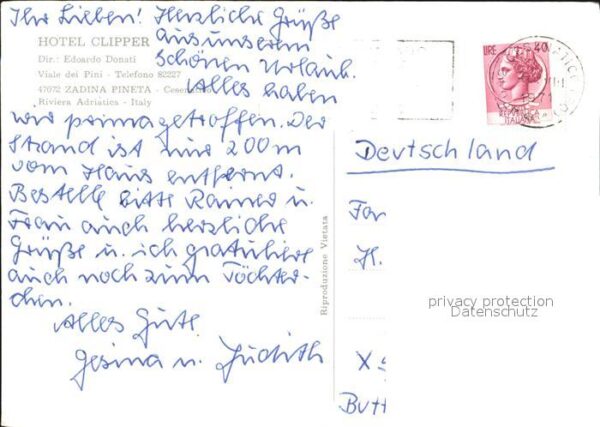 Ihr Lieben! Herzliche Grüße
HOTEL CLIPPER
aus unserem
Dir.: Edoardo Donati
schönen Urlaub.
Viale dei Pini - Telefono 82227
47072 ZADINA PINETA - Cesenatico
Alles haben
Riviera Adriatica - Italy
wir prima getroffen. Der
Strand ist nur 200 m
vom Haus entfernt.
Bestelle bitte Rainer u.
Frau auch herzliche
Grüße u. ich gratuliere
auch noch zum Töchter-
chen.
Alles Gute
Gesina u. Judith
Riproduzione Vietata
LIRE 40
REPUBBLICA
ITALIANA
Deutschland
Fa
H.
privacy protection
Datenschutz
X
Butt